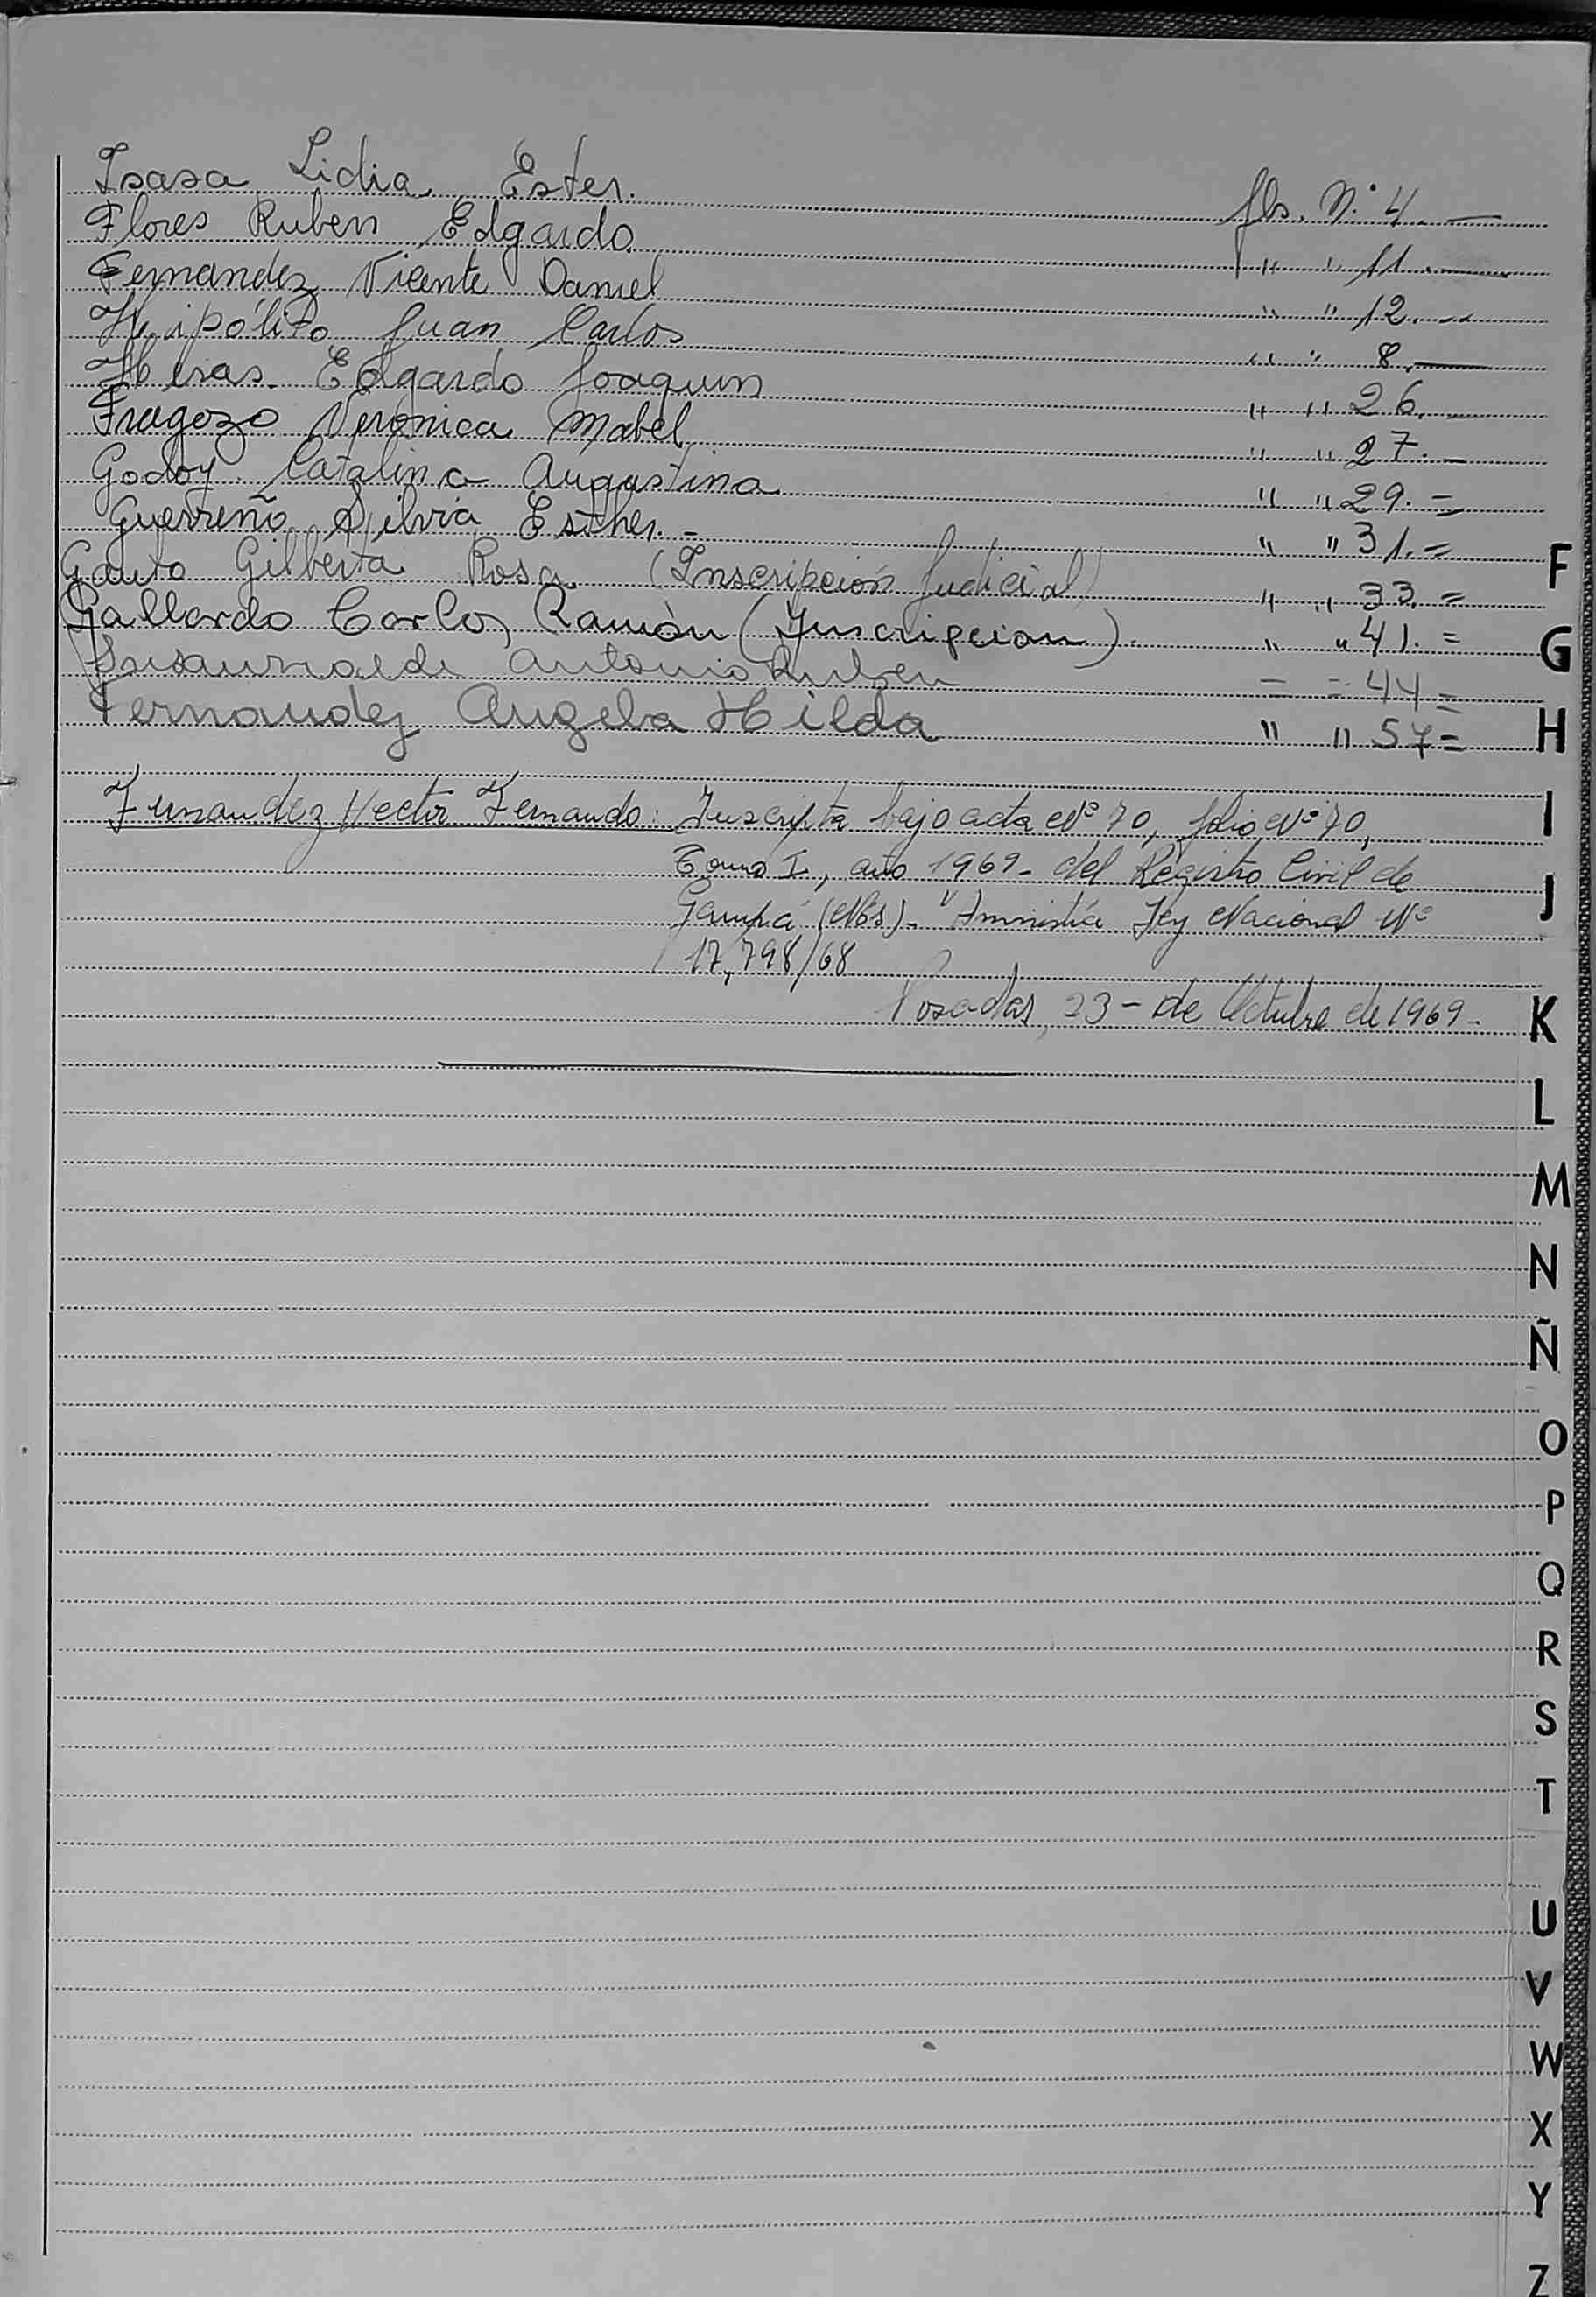 Isasa Lidia Ester. fls. N.° 4. —
Flores Ruben Edgardo. " " 11. —
Fernandez Vicente Daniel " " 12. --
Hipólito Juan Carlos " " 8. —
Heras. Edgardo Joaquin " " 26. —
Fragozo Veronica Mabel " " 27. —
Godoy Catalina Augustina " " 29. =
Guerreño Silvia Esther. - " " 31. =
Gauto Gilberta Rosa (Inscripcion Judicial) " " 33. =
Gallardo Carlos Ramón (Inscripcion). " " 41. =
Antonio Ruben = = 44 =
Fernandez Angela Hilda " " 57 =
Fernandez Hector Fernando: Inscripta bajo acta Nº 70, folio Nº 70,
Tomo I, año 1969- del Registro Civil de
(Mns)- "Amnistía Ley Nacional Nº
17,798/68
Posadas, 23 - de Octubre de 1969-
F
G
H
I
J
K
L
M
N
Ñ
O
P
Q
R
S
T
U
V
W
X
Y
Z